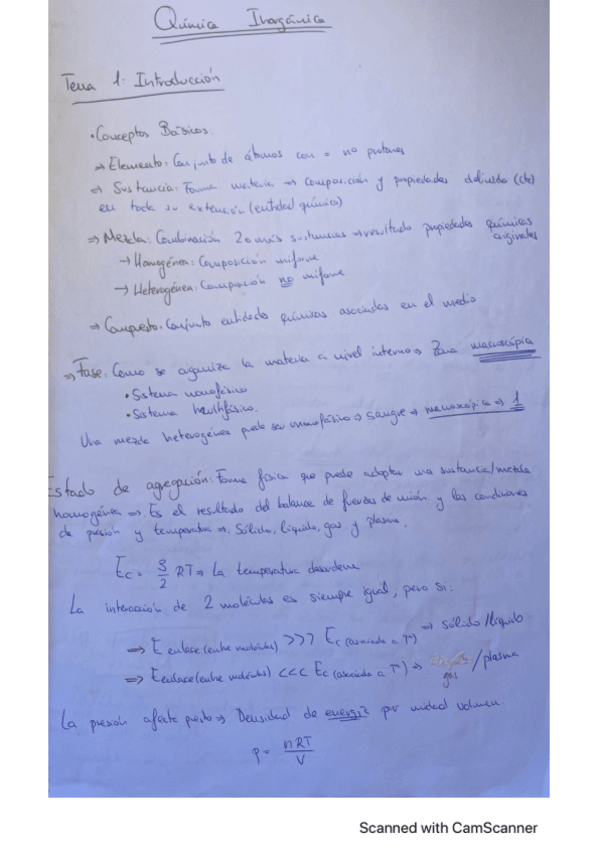 Química Inorgánica
Tema 1: Introducción
• Conceptos Básicos.
⇒ Elemento: Conjunto de átomos con = no protones
⇒ Sustancia: Forma materia ⇒ composición y propiedades definidas (cte)
en toda su extensión (entidad química)
⇒ Mezcla: Combinación 2 o más sustancias ⇒ resultado propiedades químicas
originales
→ Homogénea: Composición uniforme
→ Heterogénea: Composición no uniforme
⇒ Compuesto: Conjunto entidades químicas asociadas en el medio
⇒ Fase: Como se organiza la materia a nivel interno ⇒ Zona macroscópica
• Sistema monofásico
• Sistema multifásico.
Una mezcla heterogénea puede ser monofásico ⇒ sangre ⇒ macroscópica ⇒ 1
Estado de agregación: Forma física que puede adoptar una sustancia/mezcla
homogénea ⇒ Es el resultado del balance de fuerzas de unión y las condiciones
de presión y temperatura ⇒ Sólido, líquido, gas y plasma.
Ec = 3/2 RT ⇒ La temperatura desordena
La interacción de 2 moléculas es siempre igual, pero si:
⇒ E enlace (entre moléculas) >>> Ec (asociada a Tª) ⇒ sólido/líquido
⇒ E enlace (entre moléculas) <<< Ec (asociada a Tª) ⇒ gas/plasma
La presión afecta ⇒ Densidad de energía por unidad volumen
P = nRT/V
Scanned with CamScanner